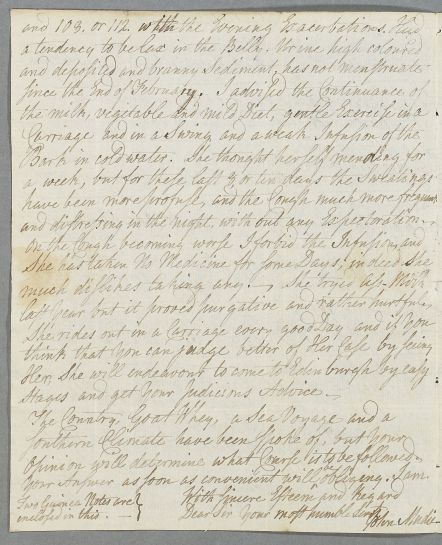 and 108. or 112. with the Evening Exacerbations. Had
a tendency to be lax in the Belly, Urine high colour'd
and deposited and branny Sediment, has not menstruate
since the End of February. I advised the Continuance of
the milk, vegetable and mild Diet, gentle Exercise in a
Carriage and in a Swing and a weak Infusion of the
Bark in cold water. She thought herself mending for
a week, but for these last 8 or ten days the Sweatings
have been more profuse, and the Cough much more frequent
and distressing in the night, without any Expectoration.
On the Cough becoming worse I forbid the Infusion, and
She has taken No Medicine for some Days. indeed She
much dislikes taking any. She tryed Ass Milk
last year but it proved purgative and rather hurtful.
She rides out in a Carriage every good Day and if you
think that you can judge better of Her Case by seeing
Her, She will endeavour to come to Edinburgh by easy
Stages and get your Judicious Advice.
The Country, Goat Whey, a Sea Voyage and a
Southern Climate have been spoke of, but your
Opinion will determine what Course is to be followed.
Your Answer as soon as convenient will be obliging. I am
With sincere Esteem and Regard
Two Guinea Notes are
inclosed in this.
Dear Sir Your most humble Servt
John